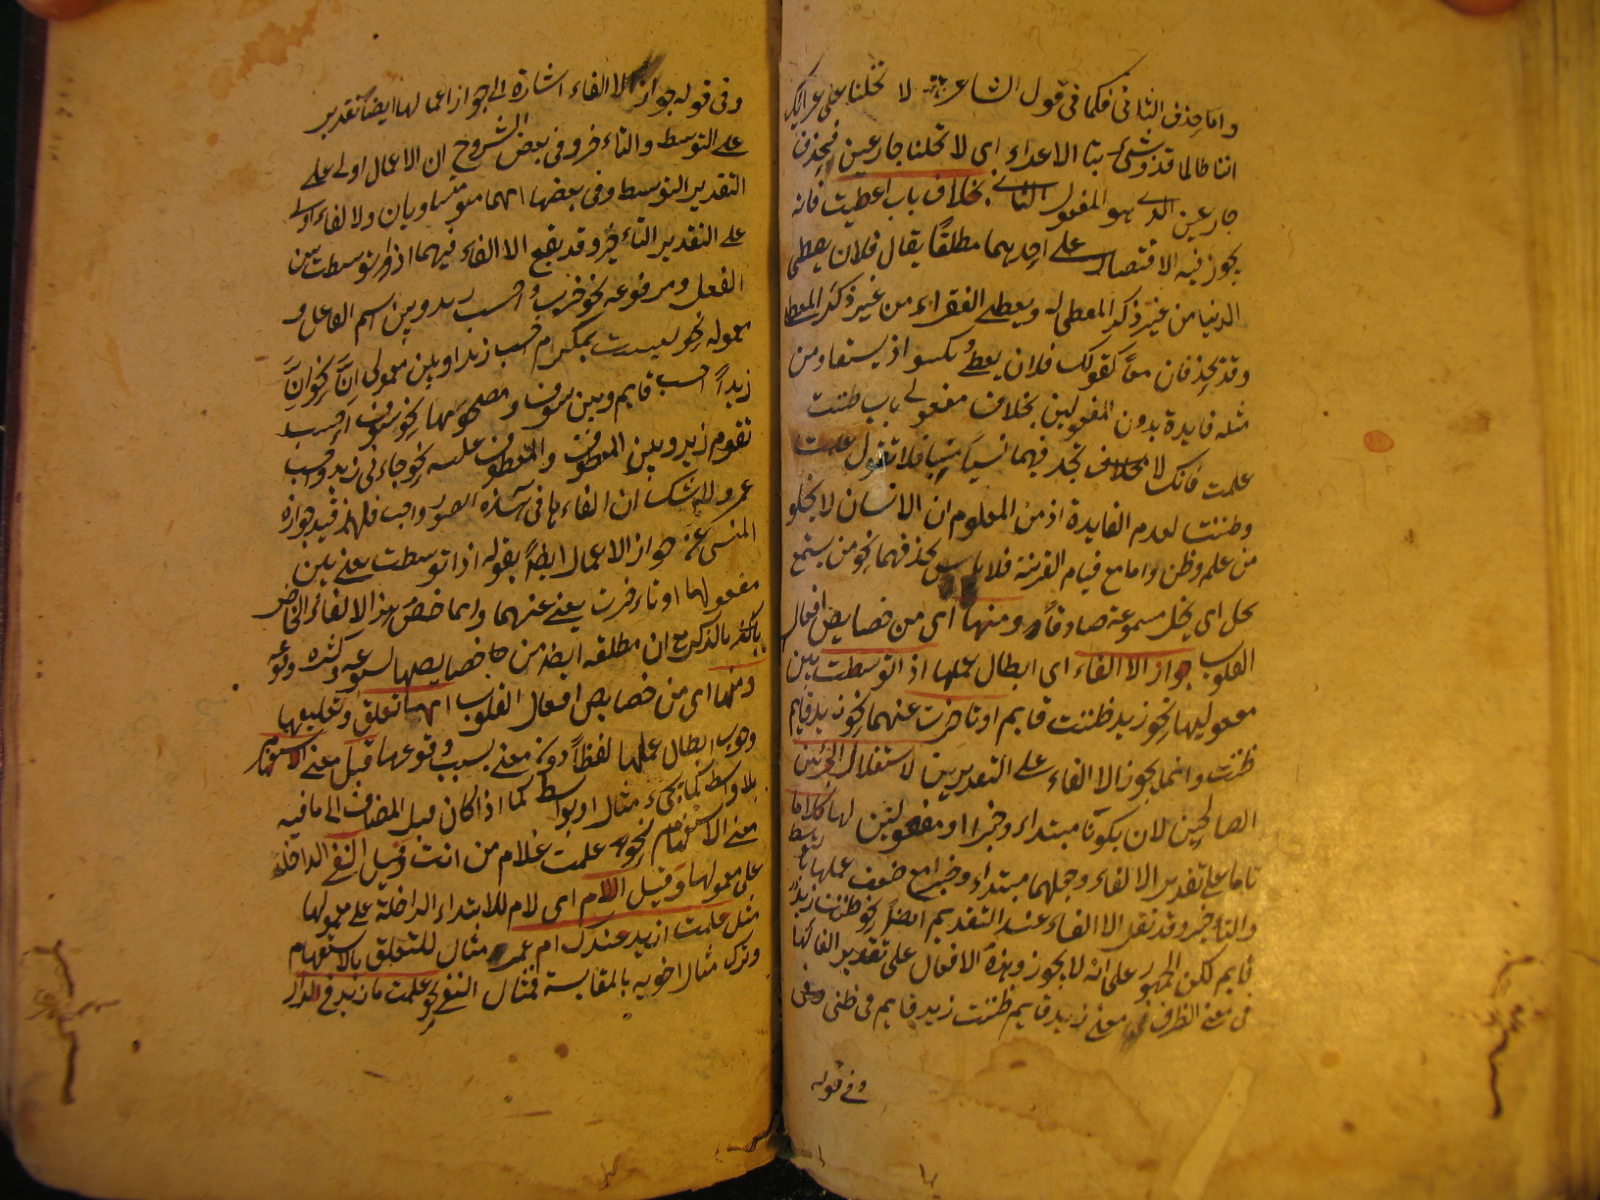 واما حذف الثاني فكما في قول الشاعر لا تخلنا على غرائك
اننا طالما قد وشى بنا الاعداء اى لا تخلنا جازعين فحذف
جازعين الذي هو المفعول الثاني بخلاف باب اعطيت فانه
يجوز فيه الاقتصار على احدهما مطلقا يقال فلان يعطى
الدنيا من غير ذكر المعطى له ويعطى الفقراء من غير ذكر المعطى
وقد يحذفان معا كقولك فلان يعطى ويكسو اذ يستفاد من
مثله فايدة بدون المفعولين بخلاف مفعولى باب ظننت
علمت فانك لا تحذفهما نسيا منسيا فلا تقول علمت
وظننت لعدم الفايدة اذ من المعلوم ان الانسان لا يخلو
من علم وظن واما مع قيام القرينة فلا باس بحذفهما نحو من يسمع
يخل اى يخل مسموعه صادقا ومنها اى من خصايص افعال
القلوب جواز الالغاء اى ابطال عملها اذا توسطت بين
معموليها نحو زيد ظننت قايم او تاخرت عنهما نحو زيد قايم
ظننت وانما يجوز الالغاء على التقديرين لاستقلال الجزئين
الصالحين لان يكونا مبتداء وخبرا او مفعولين لها كلاما
تاما على تقدير الالغاء وجعلهما مبتداء وخبرا مع ضعف عملها بالتوسط
والتاخر وقد نقل الالغاء عند التقديم ايضا نحو ظننت زيد
قايم لكن الجمهور على انه لا يجوز وهذه الافعال على تقدير الغائها
في معنى الظرف فمعنى زيد قايم ظننت زيد قايم في ظنى
وفى قوله
وفى قوله جواز الالغاء اشارة الى جواز اعمالها ايضا تقدير
على التوسط والتاخر وفى بعض الشروح ان الاعمال اولى على
التقدير التوسط وفى بعضها انهما متساويان والالغاء اولى
على التقدير التاخر وقد يقع الالغاء فيهما اذا توسطت بين
الفعل ومرفوعه نحو ضرب احسب زيد وبين اسم الفاعل و
معموله نحو لست بمكرم احسب زيدا وبين معمولى ان نحو ان
زيدا احسب قايم وبين سوف ومصحوبها نحو سوف احسب
تقوم زيد وبين المعطوف والمعطوف عليه نحو جاءنى زيد واحسب
عمرو ولا شك ان الغاءها فى هذه الصور واجب فلهذا قيد جوازه
المنبئ عن جواز الاعمال ايضا بقوله اذا توسطت يعنى بين
مفعوليها او تاخرت يعنى عنهما وانما خص هذا الالغاء الخاص
بالذكر مع ان مطلقه ايضا من خصايصها لشيوعه وكثرة وقوعه
ومنها اى من خصايص افعال القلوب انها تعلق وتعليقها
وجوب ابطال عملها لفظا دون معنى بسبب وقوعها قبل معنى الاستفهام
بلا واسطة كما يجىء مثاله او بواسطة كما اذا كان قبل المضاف الى ما فيه
معنى الاستفهام نحو علمت غلام من انت وقبل النفى الداخل
على معمولها وقبل اللام اى لام للابتداء الداخلة على معمولها
مثل علمت ازيد عندك ام عمرو مثال للتعلق بالاستفهام
وترك مثال اخويه بالمقايسة فمثال النفى نحو علمت ما زيد فى الدار